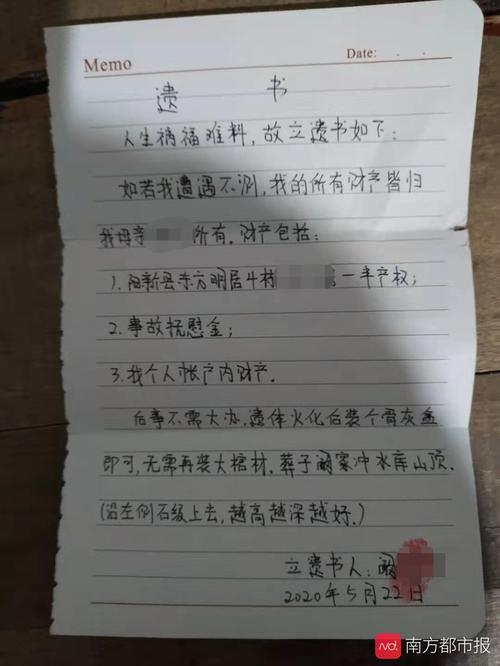 Memo Date: . .
遗 书
人生祸福难料,故立遗书如下:
如若我遭遇不测,我的所有财产皆归
我母亲 所有.财产包括:
1.阳新县东方明居4栋 一半产权;
2.事故抚慰金;
3.我个人帐户内财产.
后事不需大办,遗体火化后装个骨灰盒
即可,无需再装大棺材,葬于阚家冲水库山顶.
(沿左侧石级上去,越高越深越好.)
立遗书人:阚
2020年5月22日
南方都市报